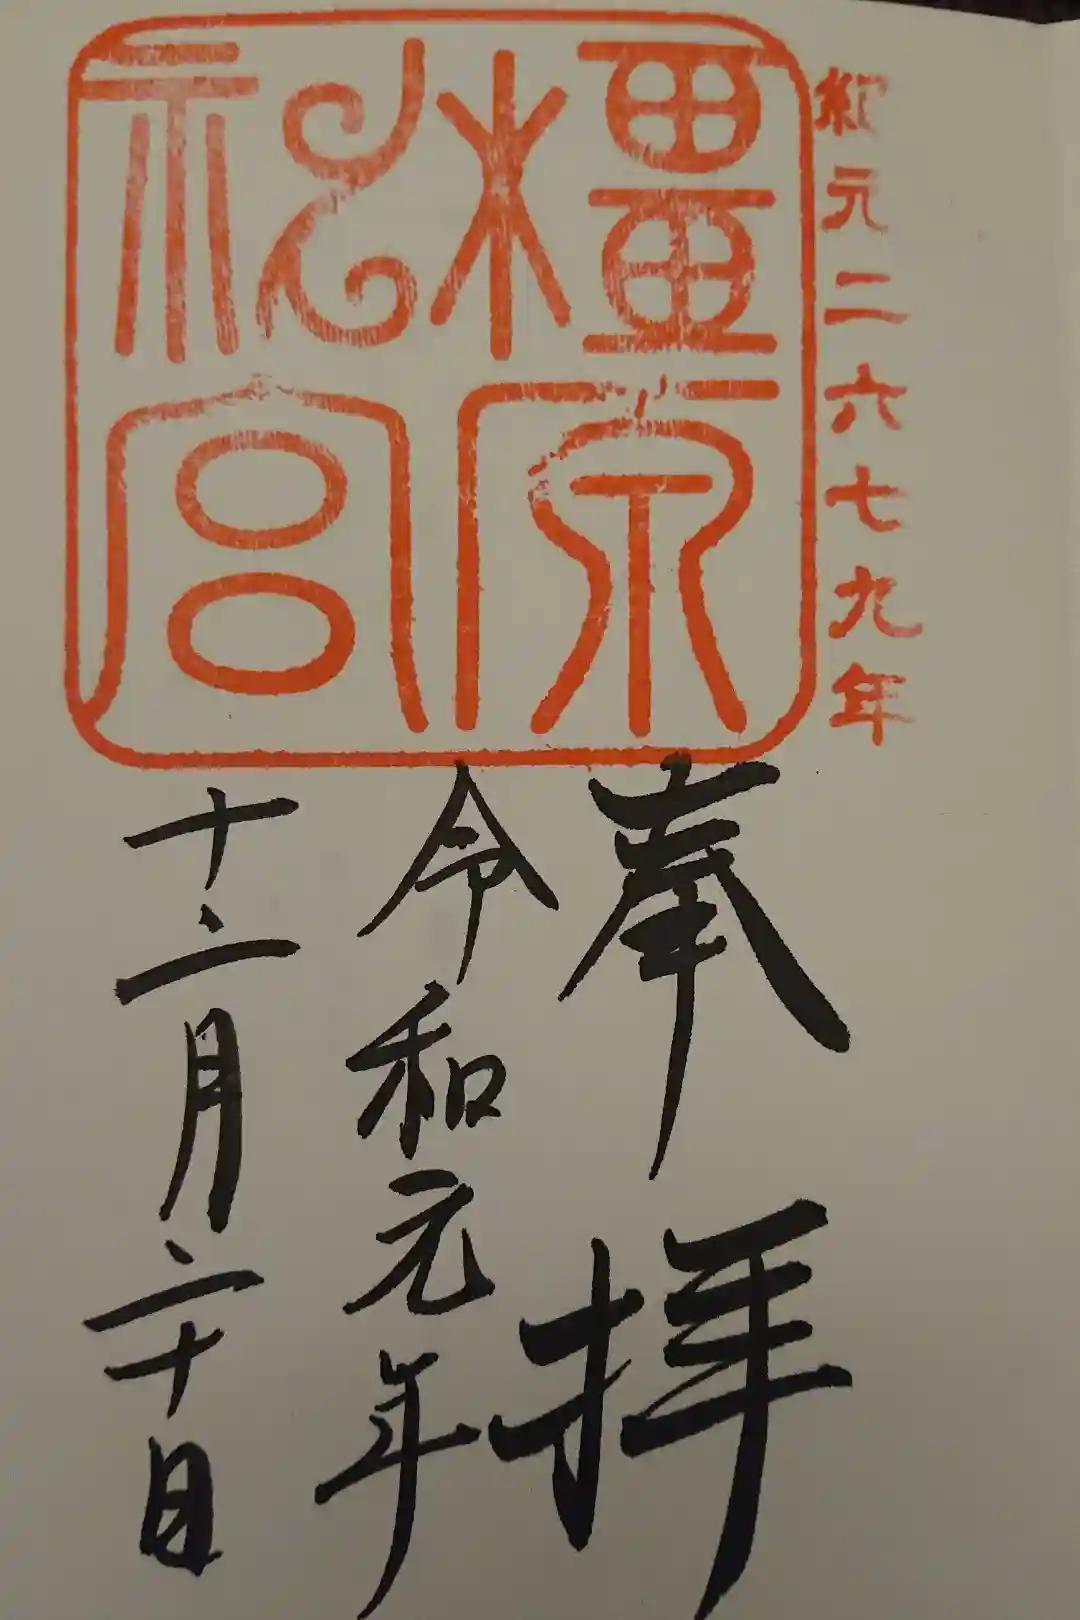 紀元二六七九年
橿原
神宮
奉拝
令和元年
十二月二十日